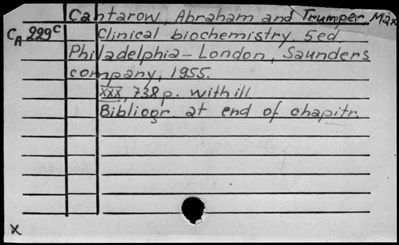 Cantarow, Abraham and Trumper, Max
CA 229c Clinical biochemistry. 5ed
Philadelphia - London, Saunders
company, 1955.
XXX, 738 p. with ill.
Bibliogr. at end of chapitr.
X